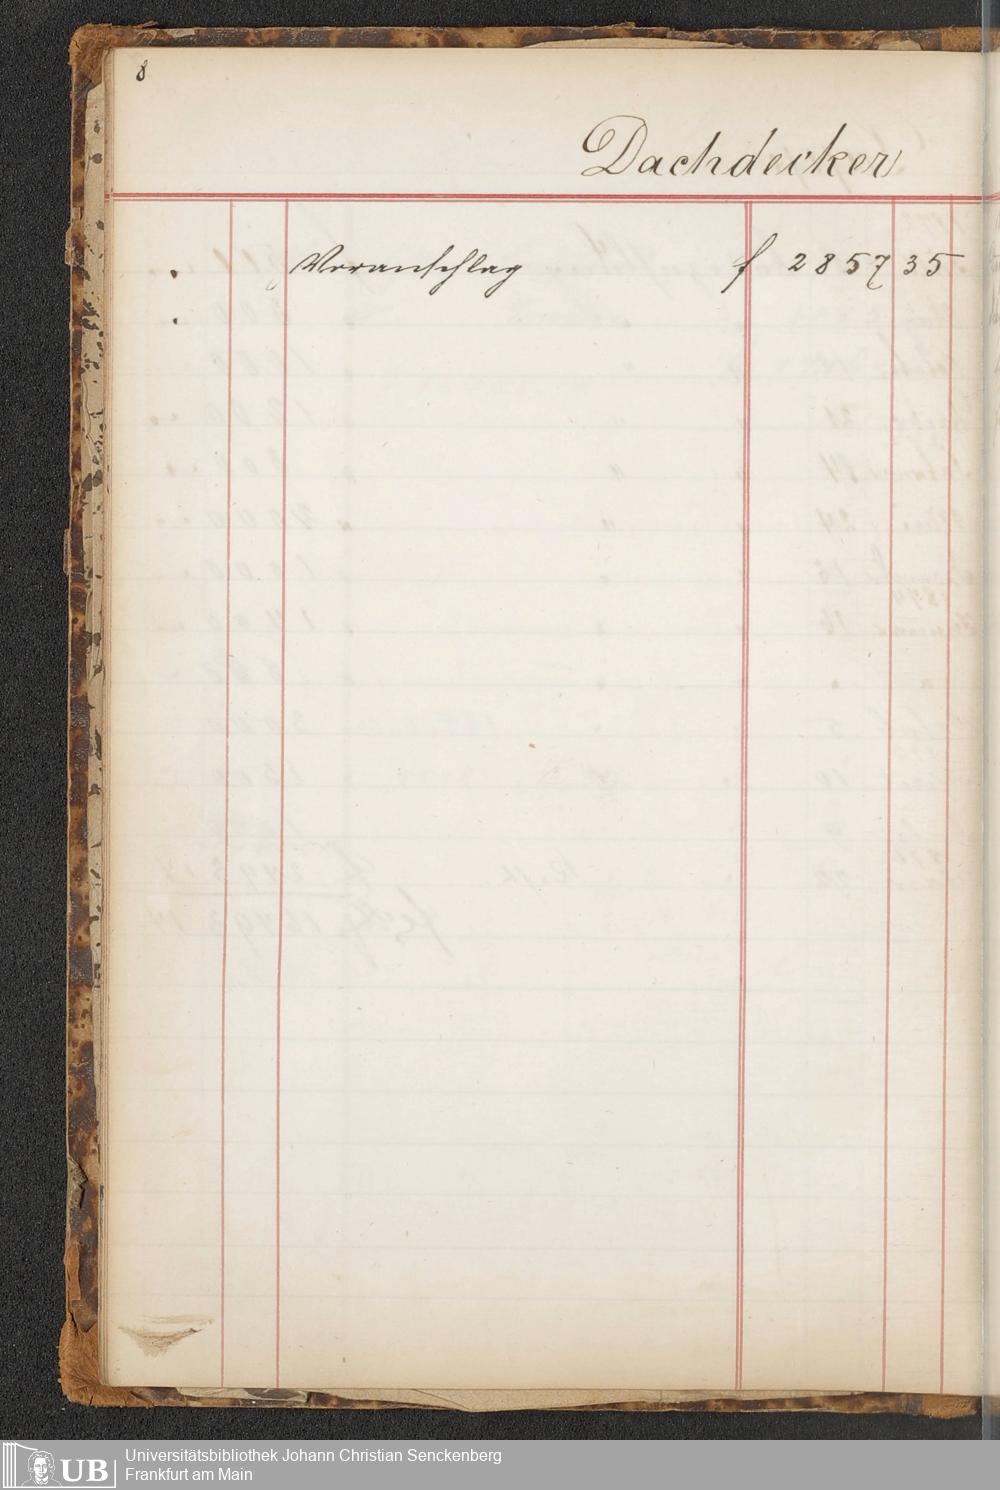 8
Dachdecker
Voranschlag f 2857 35
UB Universitätsbibliothek Johann Christian Senckenberg
Frankfurt am Main